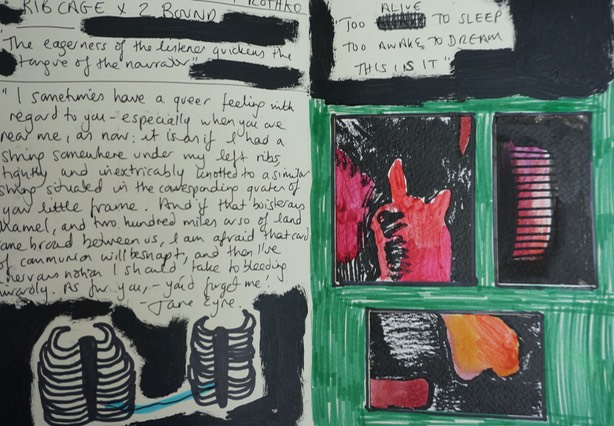 RIB CAGE X 2 BOUND
"The eagerness of the listener quickens the
tongue of the narrator"
"I sometimes have a queer feeling with
regard to you - especially when you are
near me, as now: it is as if I had a
string somewhere under my left ribs,
tightly and inextricably knotted to a similar
string situated in the corresponding quarter of
your little frame. And if that boisterous
channel, and two hundred miles or so of land
come broad between us, I am afraid that cord
of communion will be snapt, and then I've
nervous notion I should take to bleeding
inwardly. As for you, - you'd forget me."
- Jane Eyre.
ALIVE
"TOO TO SLEEP
TOO AWAKE TO DREAM
THIS IS IT"